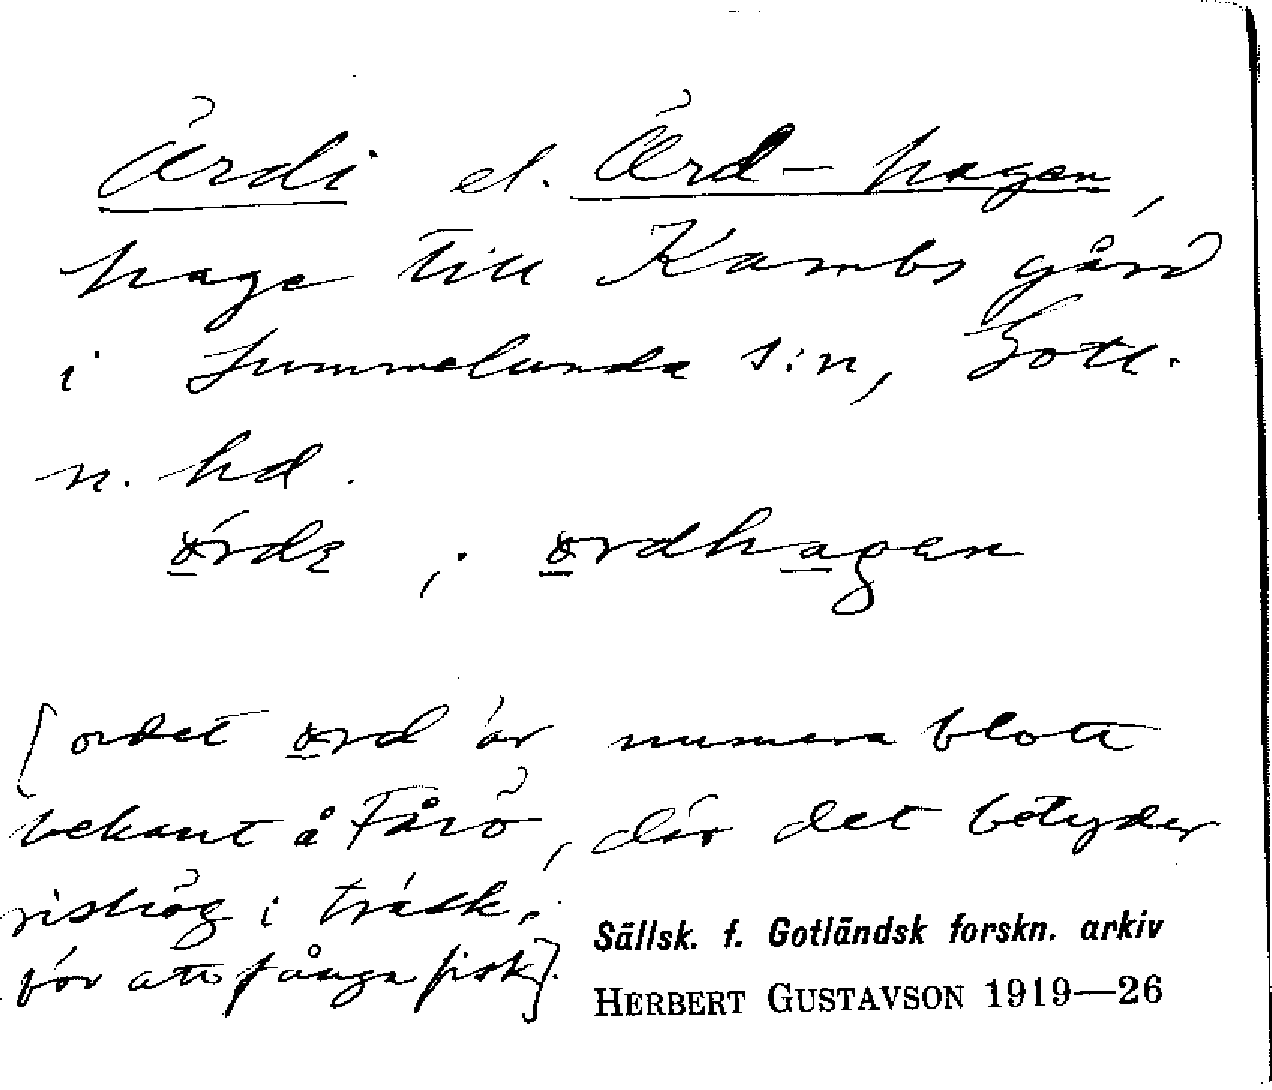 Ördi el. Örd-hagen,
hage till Kambs gård
i Lummelunda s:n, Gotl.
n. hd.
; ordhagen
[ordet ord är numera blott
bekant å Fårö, där det betyder
rishög i träsk,
för att fånga fisk].
Sällsk. f. Gotländsk forskn. arkiv
HERBERT GUSTAVSON 1919—26